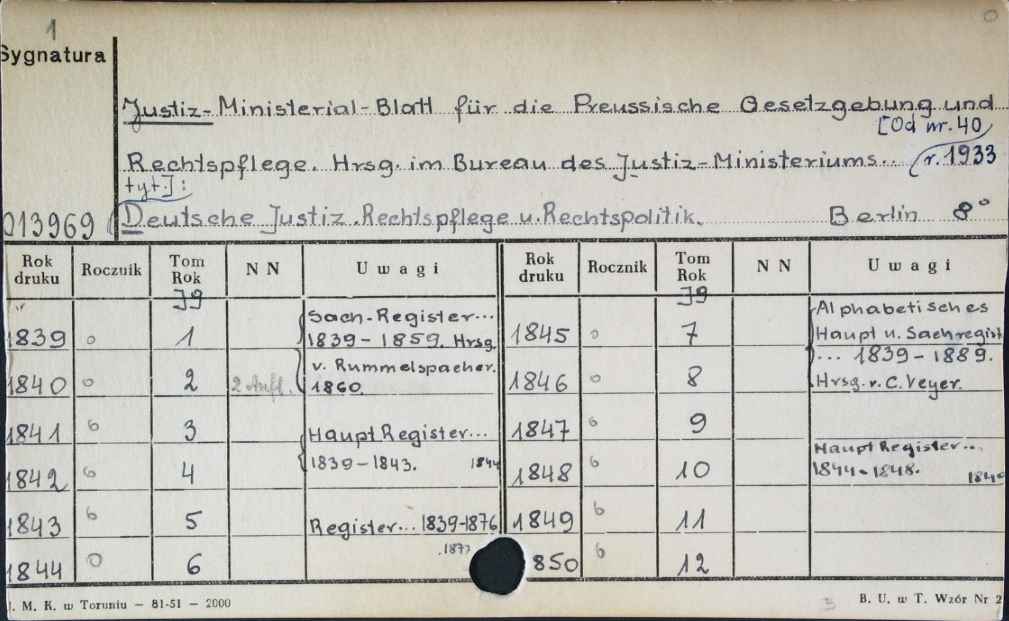 1
Sygnatura
Justiz-Ministerial-Blatt für die Preussische Gesetzgebung und
[Od nr. 40
Rechtspflege. Hrsg. im Bureau des Justiz-Ministeriums.. r. 1933
tyt.]:
013969 Deutsche Justiz. Rechtspflege u. Rechtspolitik. Berlin 8°
Rok druku Rocznik Tom Rok NN Uwagi Rok druku Rocznik Tom Rok NN Uwagi
Jg Jg
1839 o 1 Sach-Register... 1839-1859. Hrsg. 1845 o 7 Alphabetisches Haupt u. Sachregist
1840 o 2 2 Aufl. v. Rummelspacher. 1860. 1846 o 8 ... 1839-1889. Hrsg. v. C. Veyer.
1841 o 3 Haupt Register... 1847 o 9
1842 o 4 1839-1843. 1844 1848 o 10 Haupt Register... 1844-1848.
1843 o 5 Register... 1839-1876 1849 o 11
1844 o 6 1877 850 o 12
J. M. K. w Toruniu - 81-51 - 2000 B. U. w T. Wzór Nr 2